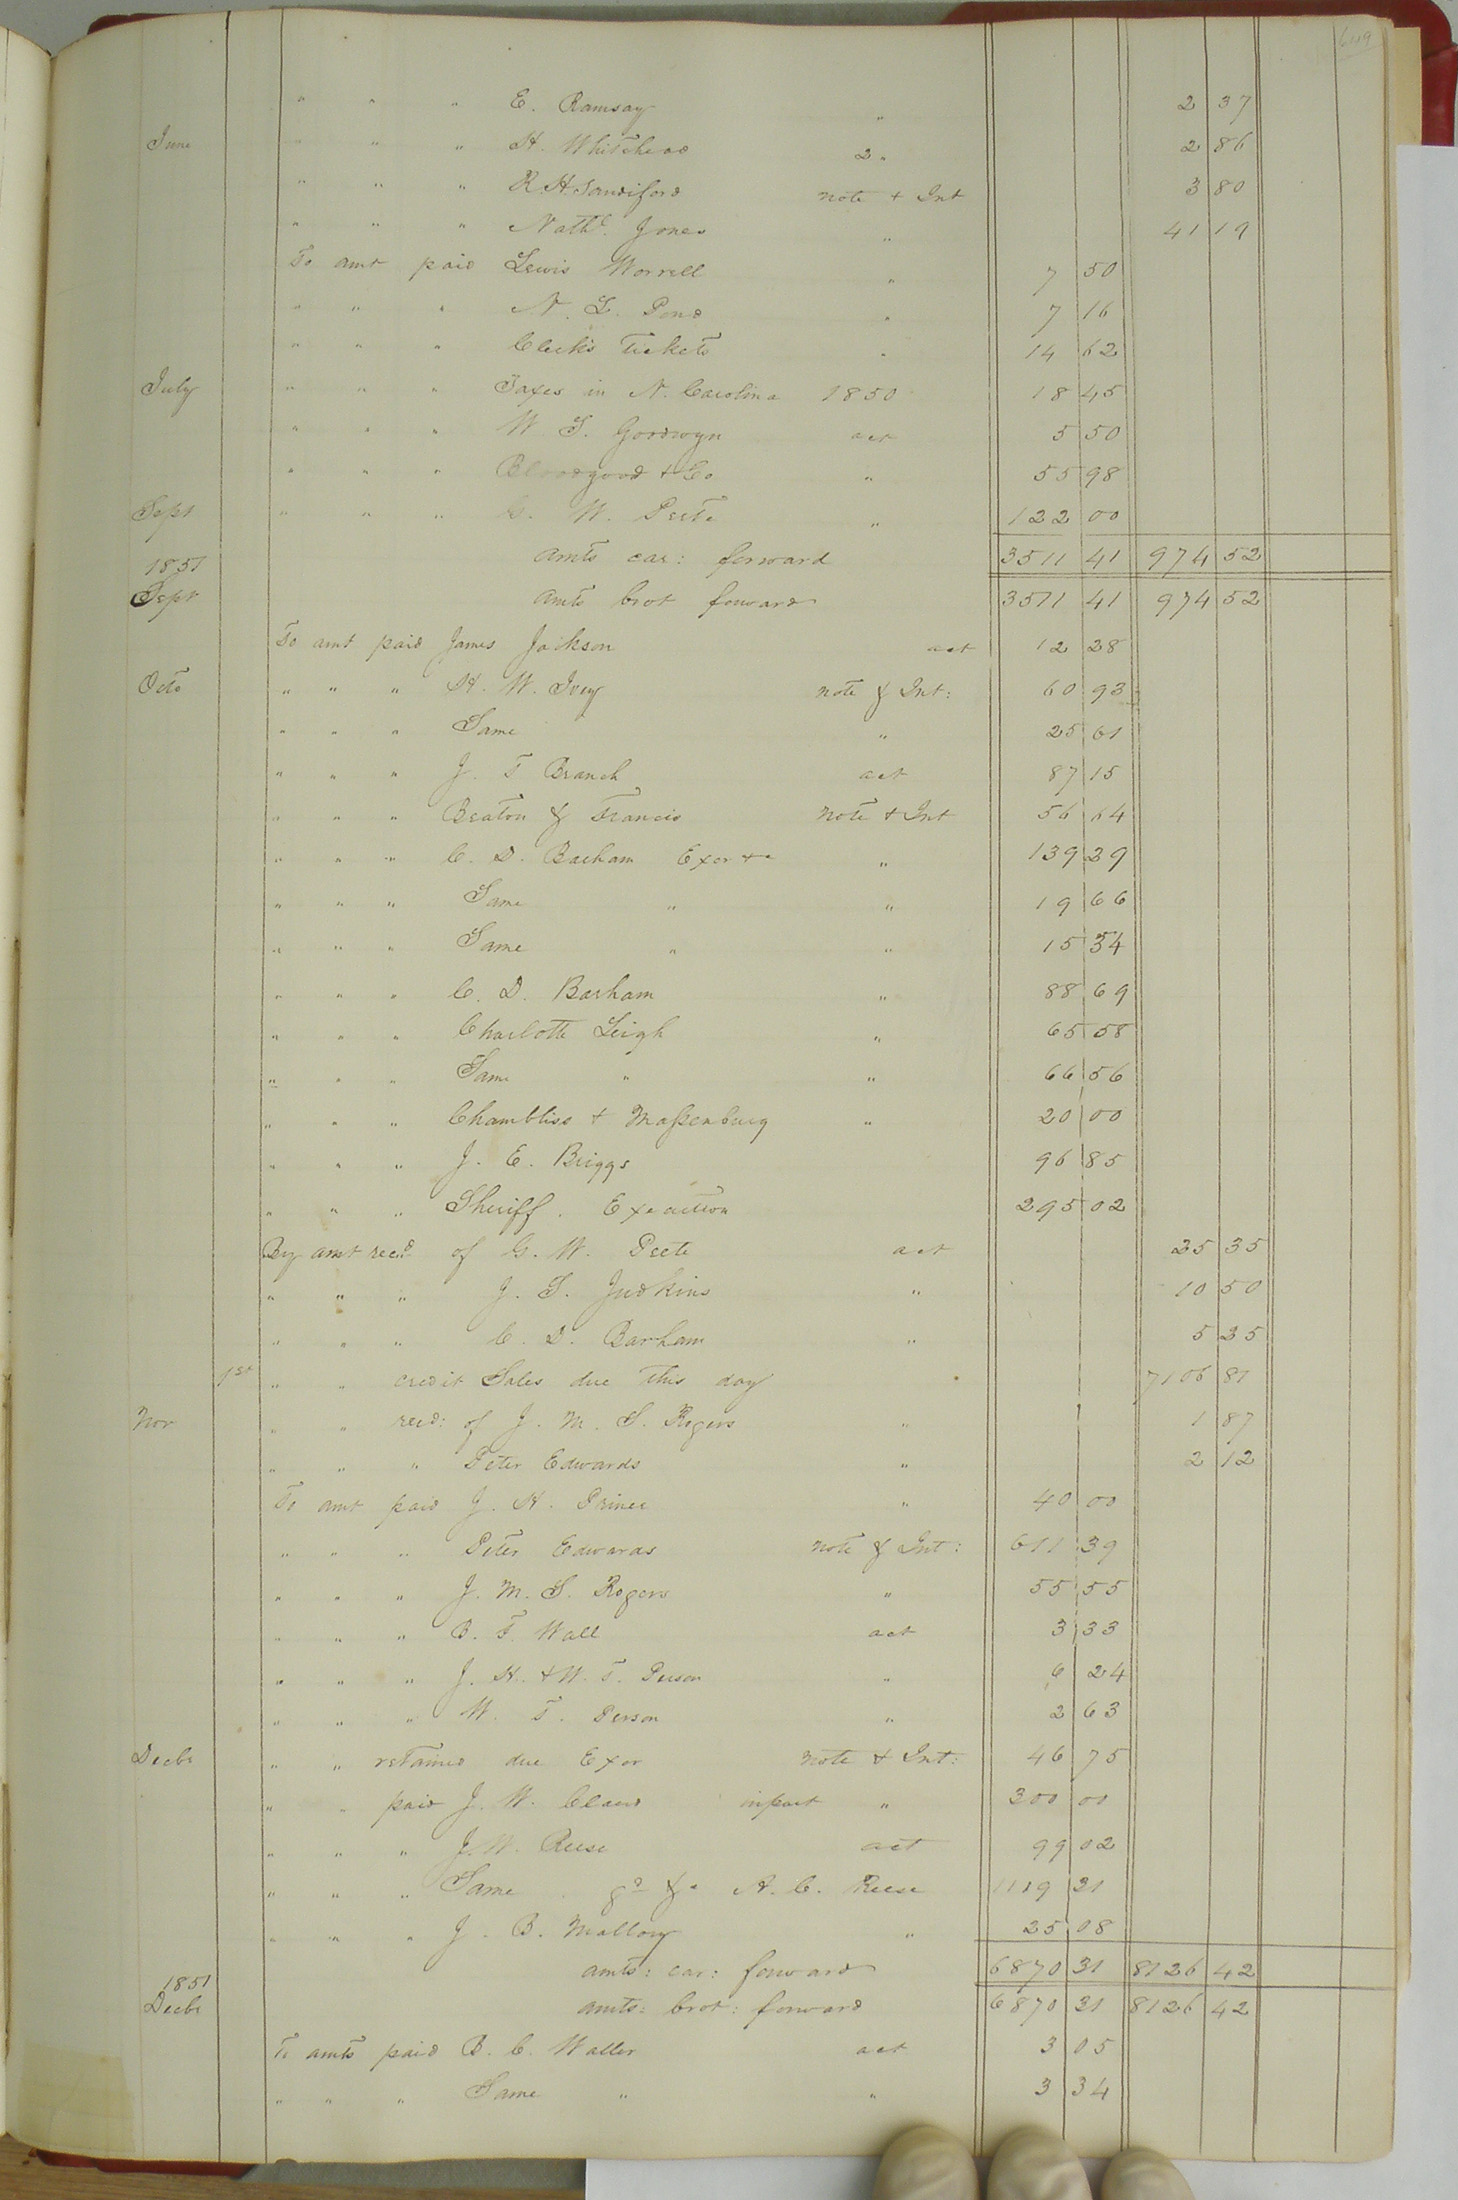 649
" " " E. Ramsay " 2 37
June " " " H. Whitehead 2 " 2 86
" " " R. H. Sandiford note + Int 3 80
" " " Nathl. Jones " 41 19
To amt paid Lewis Worrell " 7 50
" " " N. L. Pond " 7 16
" " " Clerk's Tickets " 14 62
July " " " Taxes in N. Carolina 1850 18 45
" " " W. S. Goodwyn act 5 50
" " " Bloodgood + Co " 55 98
Sept " " " G. W. Peete " 122 00
1851 amts car: forward 3511 41 974 52
Sept amts brot forward 3511 41 974 52
To amt paid James Jackson act 12 28
Octo " " " H. W. Ivey note & Int: 60 93
" " " Same " 25 61
" " " J. T Branch act 87 15
" " " Beaton & Francis note + Int 56 64
" " " C. D. Barham Exor +c " 139 29
" " " Same " " 19 66
" " " Same " " 15 34
" " " C. D. Barham " 88 69
" " " Charlotte Leigh " 65 58
" " " Same " " 66 56
" " " Chambliss + Massenburg " 20 00
" " " J. E. Briggs 96 85
" " " Sheriff. Execution 295 02
By amt recd. of G. W. Peete act 25 35
" " " J. S. Judkins " 10 50
" " " C. D. Barham " 5 25
1st " " credit Sales due this day 7106 81
Nov " " recd: of J. M. S. Rogers " 1 87
" " " Peter Edwards " 2 12
To amt paid J. H. Prince " 40 00
" " " Peter Edwards note & Int: 611 39
" " " J. M. S. Rogers " 55 55
" " " B. F. Wall act 3 33
" " " J. H. + W. T. Person " 6 24
" " " W. T. Person " 2 63
Decbr " " retained due Exor note + Int: 46 75
" " paid J. W. Claud inpart " 300 00
" " " J. W. Reese act 99 02
" " " Same gd &c A. C. Reese 1119 21
" " " J. B. Mallory " 25 08
1851 amts: car: forward 6870 31 8126 42
Decbr amts: brot: forward 6870 31 8126 42
To amts paid B. C. Waller act 3 05
" " " Same " " 3 34